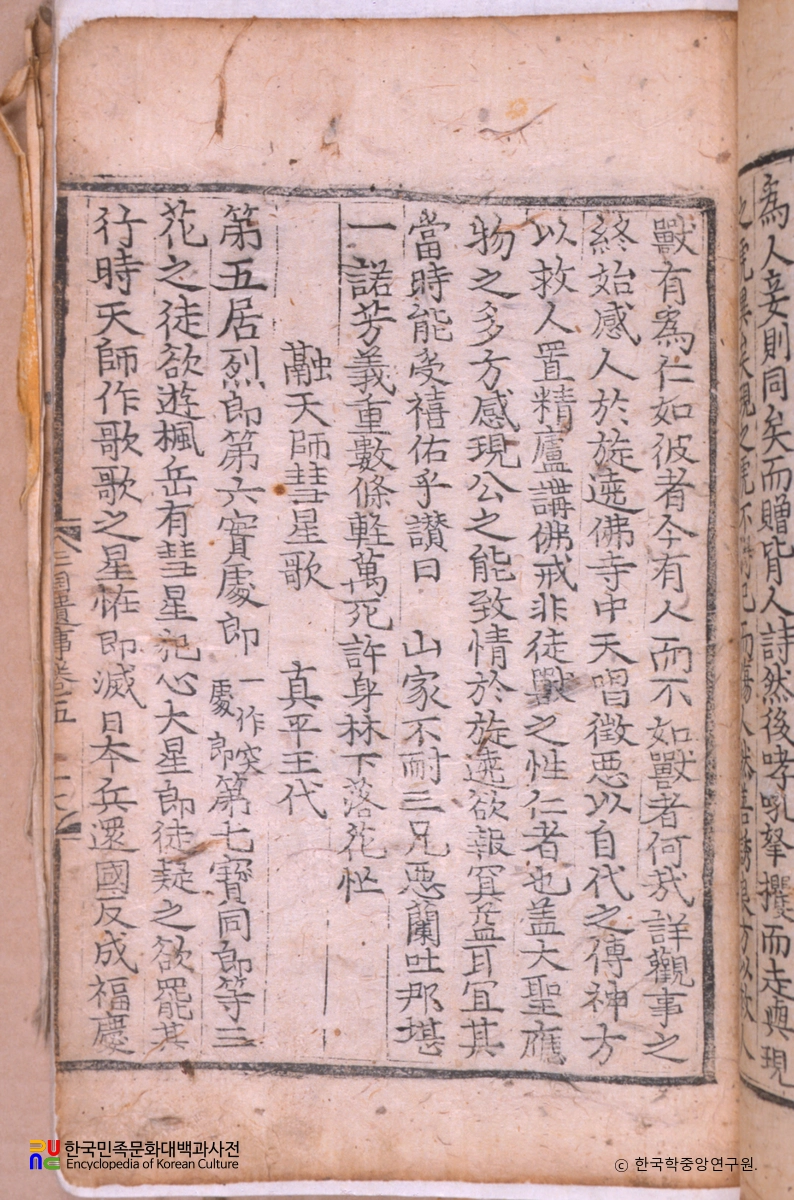 為人妾則同矣而贈背人詩然後哮吼拏攫而走與現
獸有為仁如彼者今有人而不如獸者何㢤詳觀事之
終始感人於旋遶佛寺中天唱徵惡以自代之傳神方
以救人置精廬講佛戒非徒獸之性仁者也盖大聖應
物之多方感現公之能致情於旋遶欲報冥益耳宜其
當時能受禧佑乎讃曰 山家不耐三兄惡蘭吐那堪
一諾芳義重數條軽萬死許身林下落花忙
融天師彗星歌 真平王代
第五居烈郎第六實處郎 一作突處郎 第七寶同郎等三
花之徒欲遊楓岳有彗星犯心大星郎徒疑之欲罷其
行時天師作歌歌之星恠即滅日本兵還國反成福慶
三國遺事卷五
한국민족문화대백과사전
Encyclopedia of Korean Culture
ⓒ 한국학중앙연구원.